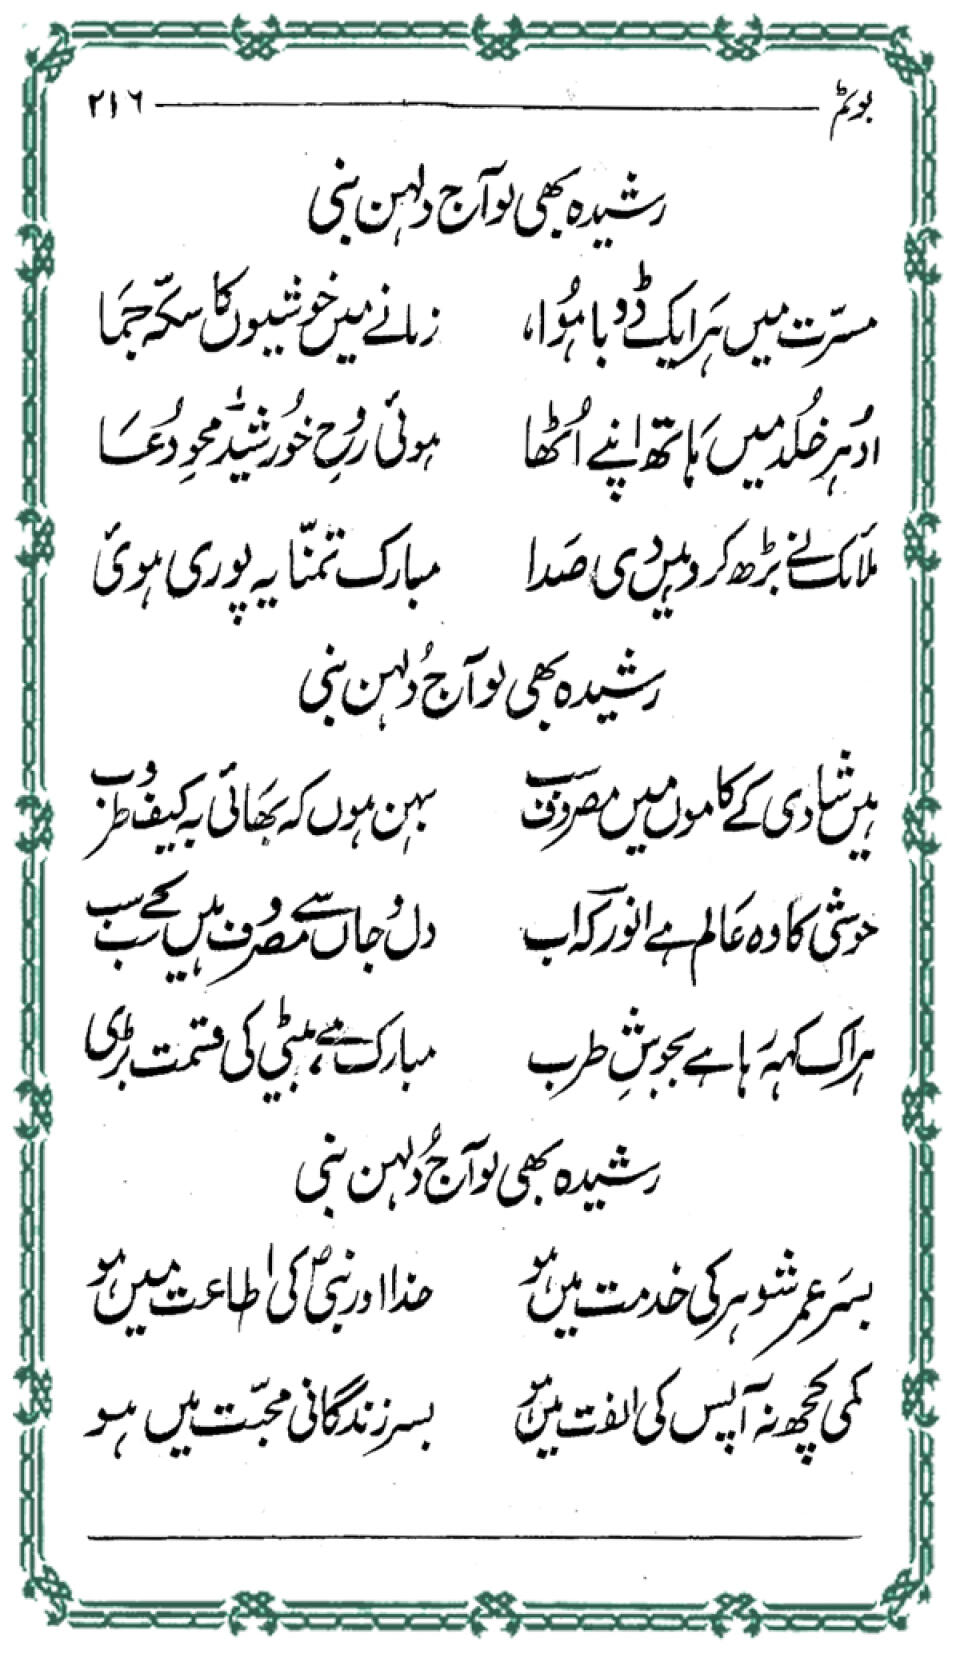 بوئم ۲۱۶
رشیدہ بھی لو آج دلہن بنی
مسرّت میں ہر ایک ڈوبا ہُوا، زمانے میں خوشیوں کا سکّہ جَما
اُدہر خُلد میں ہاتھ اپنے اُٹھا ہوئی رُوحِ خُورشید محوِ دُعَا
ملائک نے بڑھ کر وہیں دی صَدا مبارک تمنّا یہ پوری ہوئی
رشیدہ بھی لو آج دُلہن بنی
ہیں شادی کے کاموں میں مصروف سب بہن ہوں کہ بھَائی بہ کیف و طرب
خوشی کا وہ عَالم ہے انور کہ اب دل و جاں سے مصروف ہیں کے سب سب
ہر اک کہہ رہا ہے بجوشِ طرب مبارک ہے، بیٹی کی قسمت بڑی
رشیدہ بھی لو آج دُلہن بنی
بسَر عمر شوہر کی خدمت میں ہو خدا اور نبیؐ کی اطاعت میں ہو
کمی کچھ نہ آپس کی الفت میں ہو بسر زندگانی محبّت میں ہو